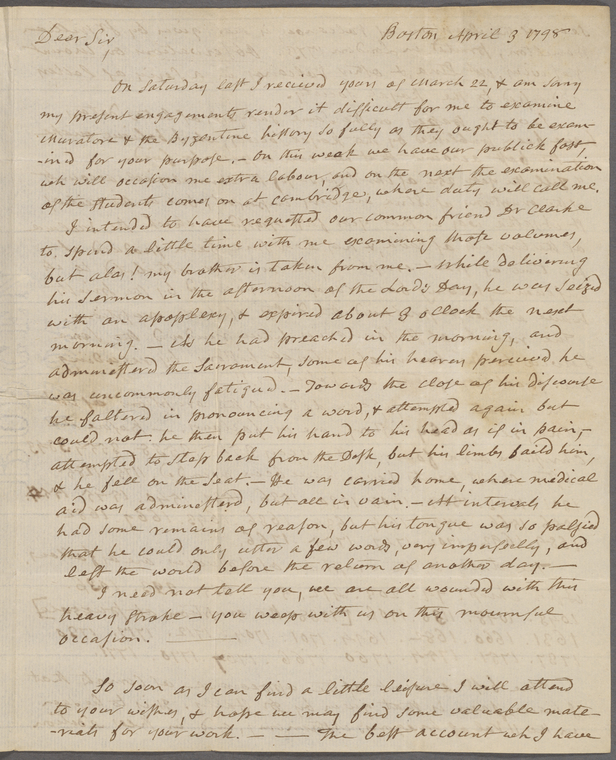 Dear Sir, Boston April 3 1798
On Saturday last I received yours of March 22, & am sorry
my present engagements render it difficult for me to examine
Muratore & the Byzentine history so fully as they ought to be exam-
-ined for your purpose. – On this week we have our publick fast,
wh will occasion me extra labour, and on the next the examination
of the students comes on at Cambridge, where duty will call me.
I intended to have requested our common friend Dr Clarke
to spend a little time with me examining those volumes,
but alas! my brother is taken from me. – While delivering
his Sermon in the afternoon of the Lord's Day, he was seized
with an apoplexy, & expired about 3 oClock the next
morning. – As he had preached in the morning, and
administerd the Sacrament, some of his hearers perceived he
was uncommonly fatigued. – Towards the close of his discourse
he falterd in pronouncing a word, & attempted again but
could not. he then put his hand to his head as if in pain, –
attempted to step back from the Desk, but his limbs faild him,
& he fell on the Seat. – He was carried home, where medical
aid was administerd, but all in vain. – At intervals he
had some remains of reason, but his tongue was so palsied
that he could only utter a few words, very imperfectly, and
left the world before the return of another day. –
I need not tell you, we are all wounded with this
heavy stroke – you weep with us on this mournful
occasion. –
So soon as I can find a little leisure I will attend
to your wishes, & hope we may find some valuable mate-
-rials for your work. – – The best account wh I have